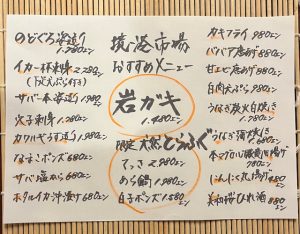 のどぐろ姿造り
1.980エン
イカ一杯刺身 2.280エン
(うど天ぷら付)
サバ一本姿造り 1.980エン
穴子刺身 1.280エン
カワハギうす造り 1.980エン
なまこポンズ 680エン
サバ塩から 680エン
ホタルイカ沖漬け 680エン
境港市場
おすすめメニュー
岩ガキ
1.480エン
限定 天然とらふぐ
てっさ 2.980エン
あら鍋 1.980エン
白子ポンズ 1.580エン
カキフライ 980エン
ババア唐あげ 880エン
甘エビ唐あげ 880エン
白肉天ぷら 980エン
うなぎ炭火白焼き
1.780エン
うなぎ蒲焼き
1.680エン
本マグロ 揚げ
にんにく丸揚げ 480エン
美和桜ひれ酒 880エン